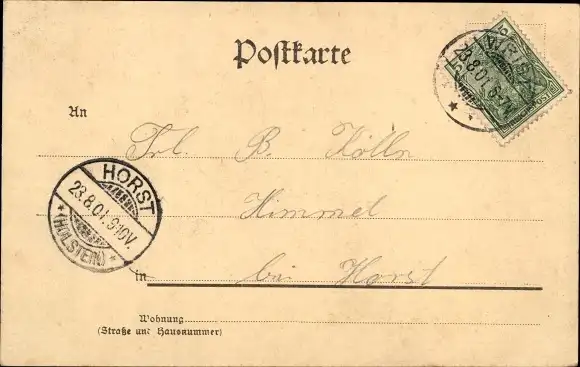 Postkarte
WRIST
23.8.01.
An
Frl. B. Kölln
HORST
23.8.01. 9-10V.
(HOLSTEIN)
Himmel
in bei Horst
Wohnung
(Straße und Hausnummer)